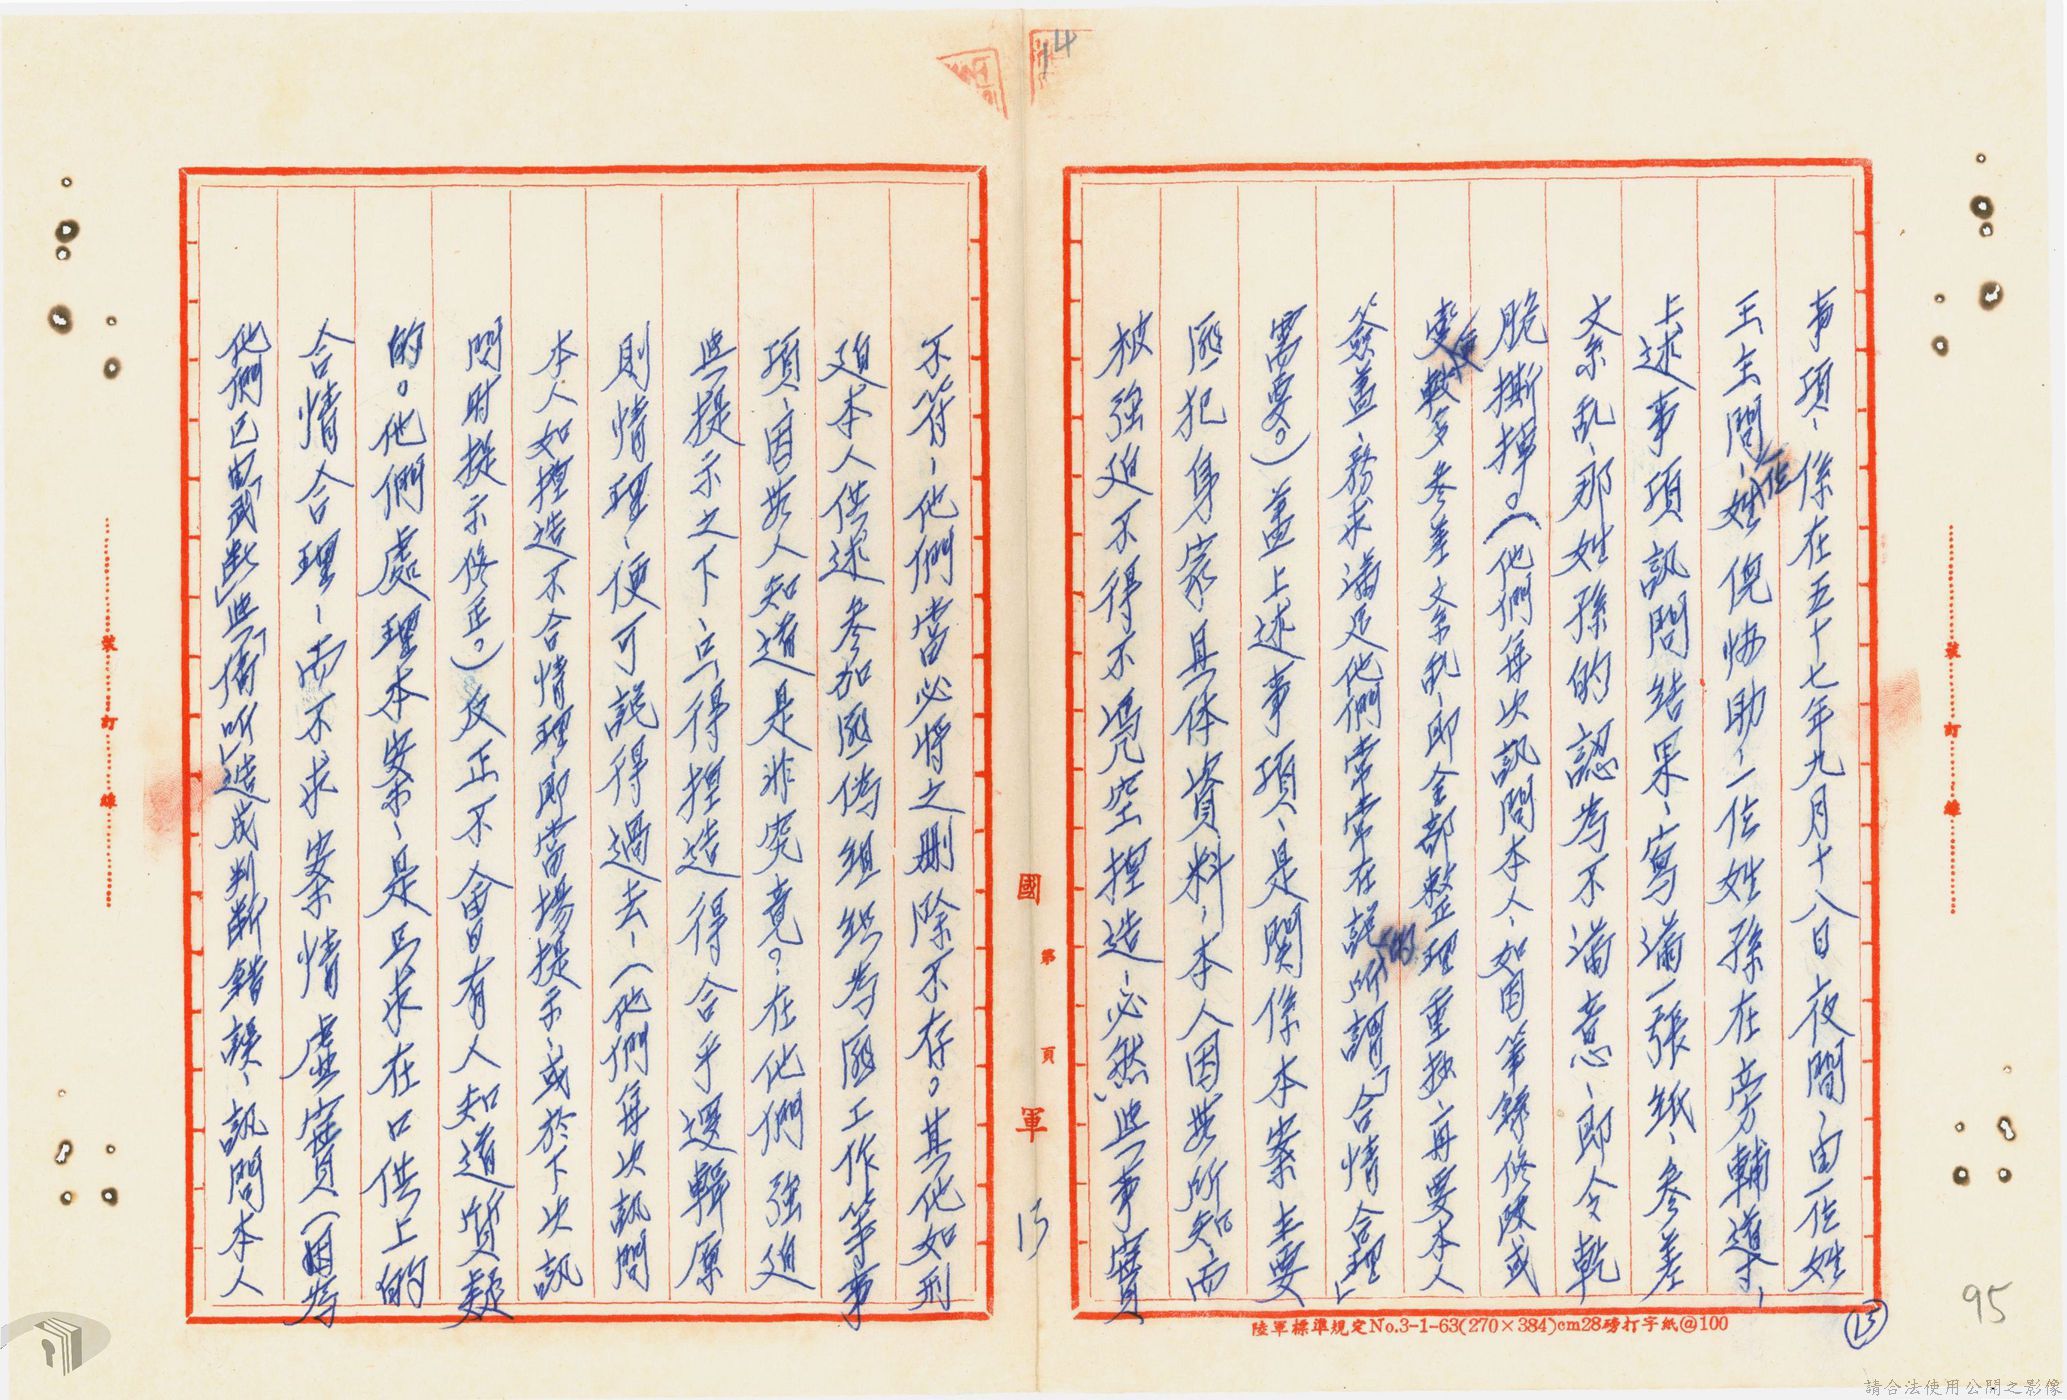 14
事項、係在五十七年九月十八日夜間、由一位姓
王主問、一位姓倪快助、一位姓孫在旁輔導、
上述事項訊問結果、寫滿一張紙、參差
文系亂、那姓孫的認為不滿意、即令乾
脆撕掉。（他們每次訊問本人、如因筆錄修改或
塗較多參差文系亂、即全部整理重抄、再要本人
簽蓋、務求滿足他們常常在說的所謂「合情合理」
需要。）蓋上述事項、是關係本案主要
匪犯身家具体資料、本人因無所知、而
被強迫不得不憑空揑造、必然與事實
不符、他們當必將之刪除不存。其他如刑
迫本人供述參加匪偽組織為匪工作等事
項、因無人知道是非究竟。在他們強迫
與提示之下、只得揑造得合乎邏輯原
則情理、便可說得過去、（他們每次訊問
本人如揑造不合情理、即當場提示、或於下次訊
問時提示修正。）反正不會有人知道質疑
的。他們處理本案、是只求在口供上的
合情合理、而不求案情虛實（因為
他們已由「武斷」與「倚听」造成判斷錯誤、訊問本人
國
軍
第
頁
15
裝
訂
線
裝
訂
線
陸軍標準規定No.3-1-63(270×384)cm28磅打字紙@100
15
95
請合法使用公開之影像